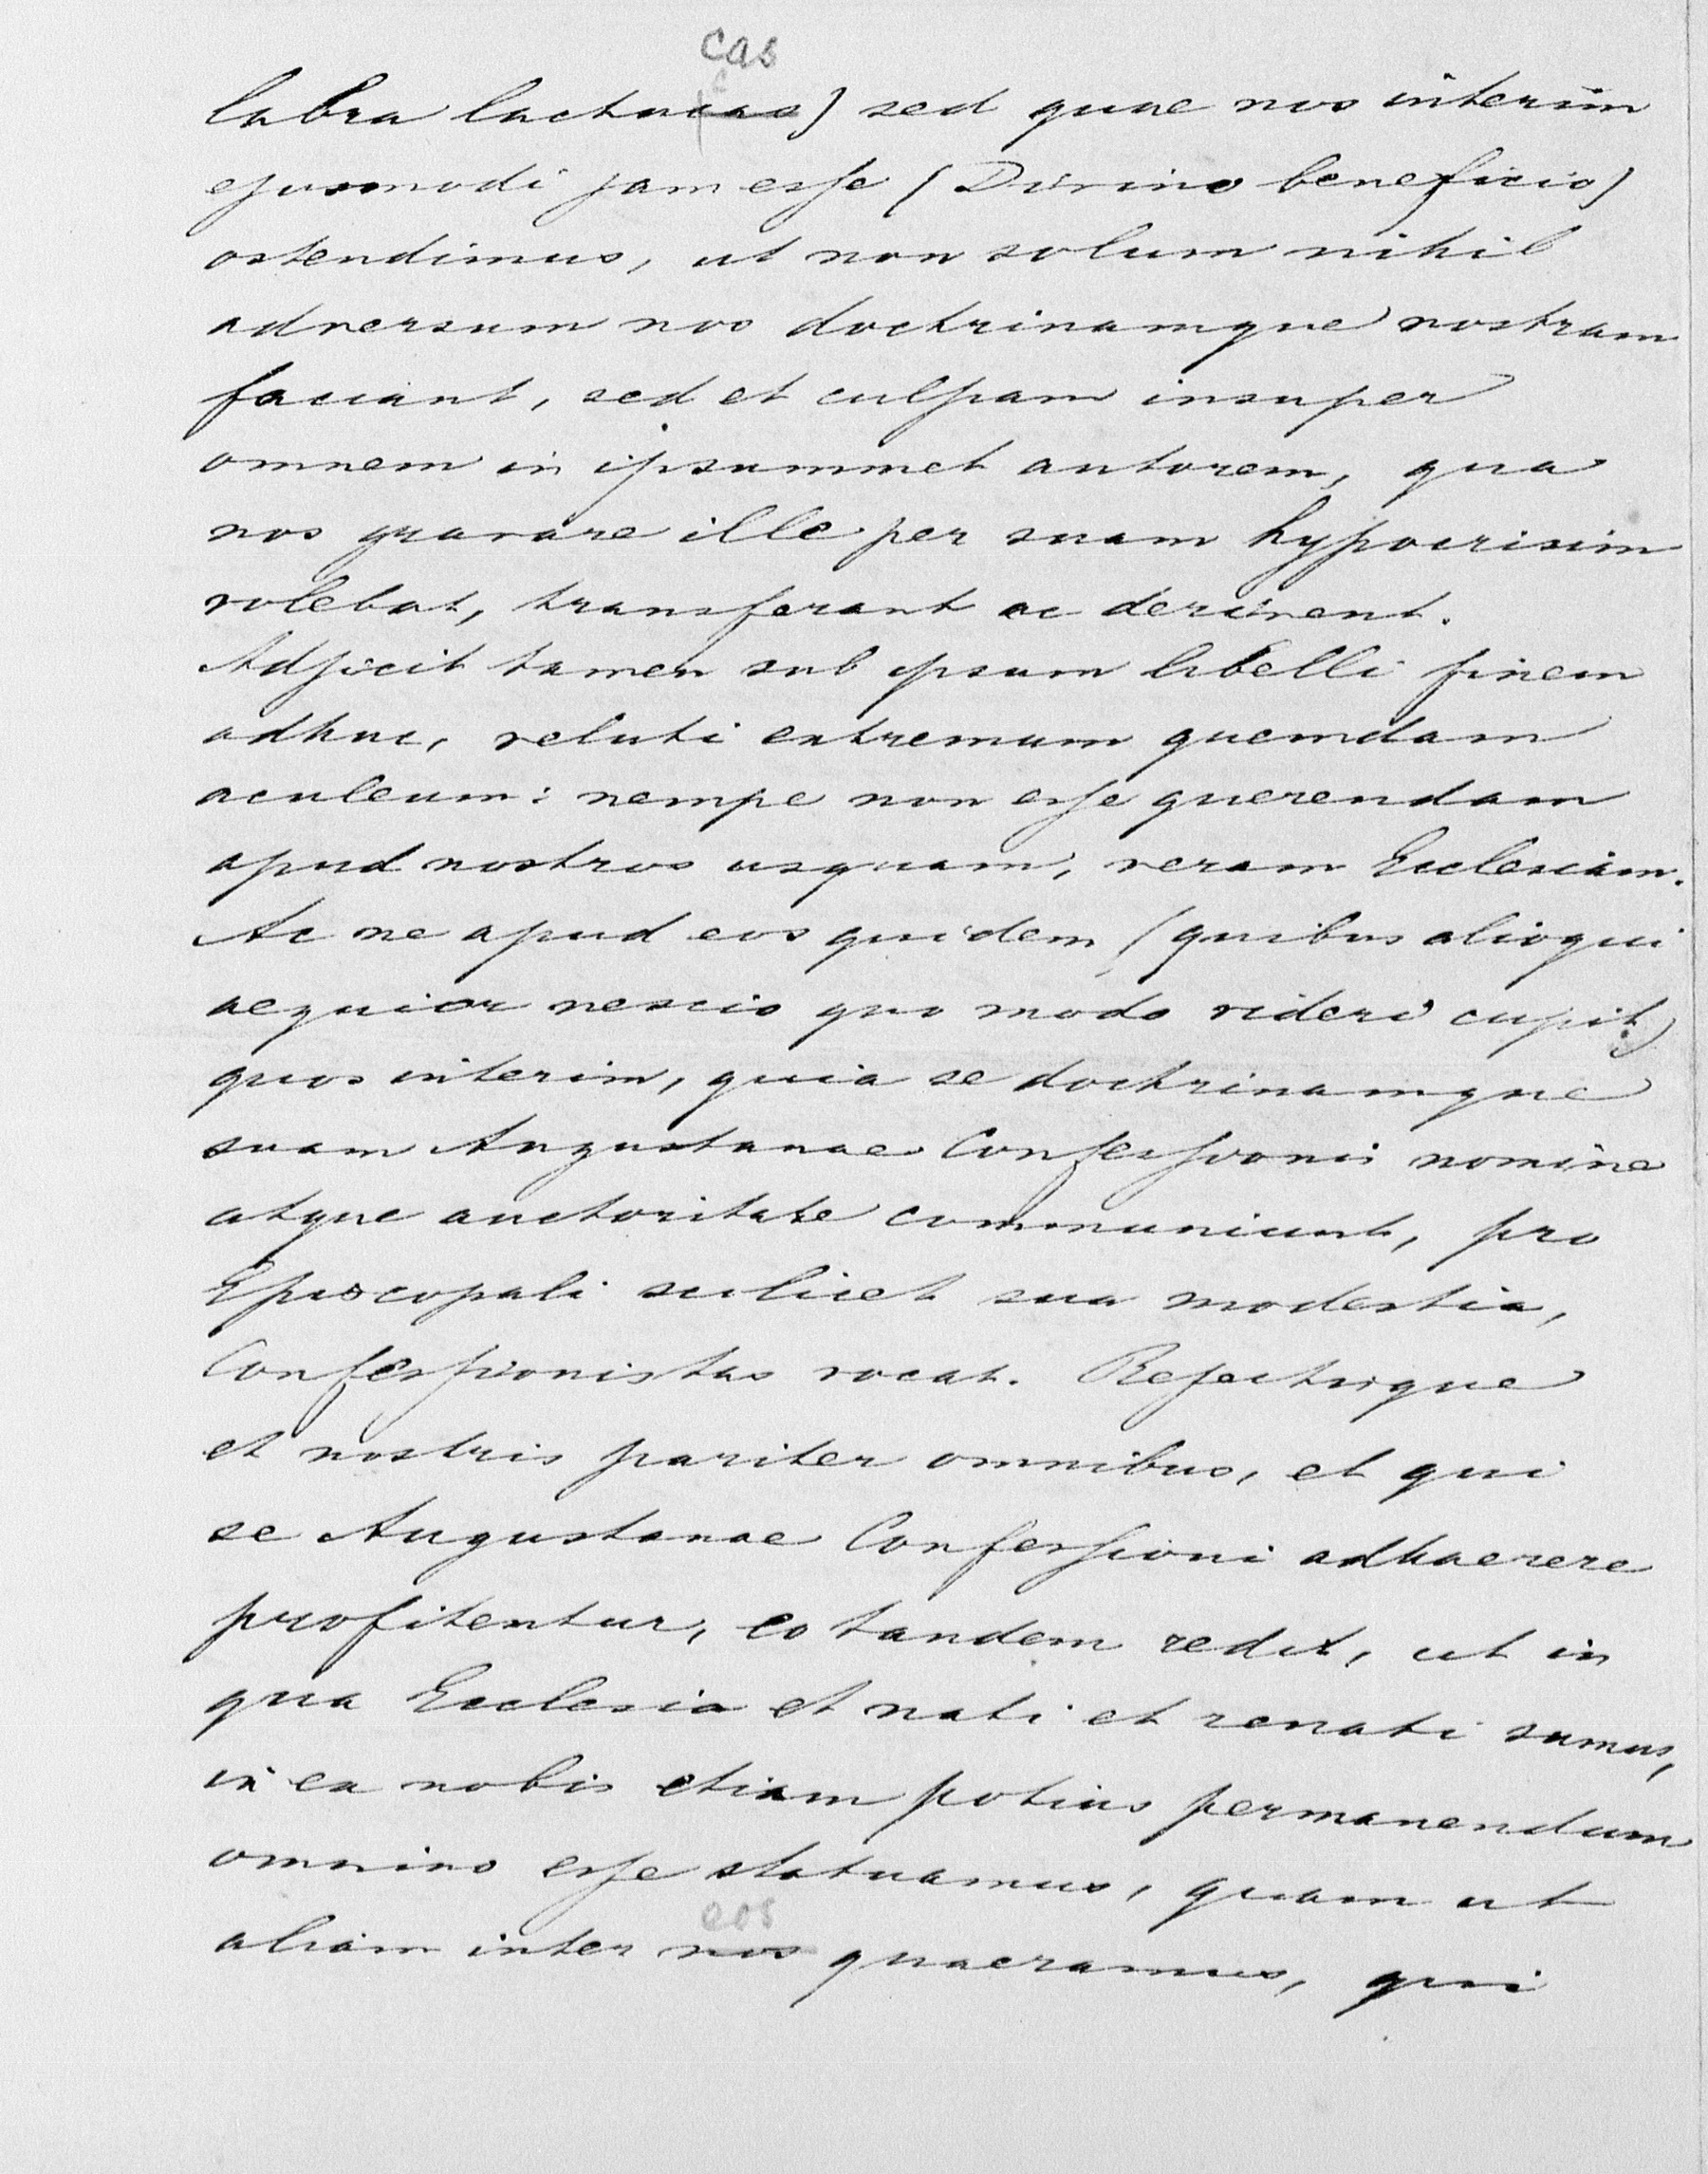 cas
labra lactucas) sed quae nos interim
ejusmodi jam esse (Divino beneficio)
ostendimus, ut non solum nihil
adversum nos doctrinamque nostram
faciant, sed et culpam insuper
omnem in ipsummet autorem, qua
nos gravare ille per suam hypocrisim
volebat, transferant ac derivent.
Adjicit tamen sub ipsum libelli finem
adhuc, veluti extremum quemdam
aculeum: nempe non esse querendam
apud nostros usquam, veram Ecclesiam.
Ac ne apud eos quidem (quibus alioqui
aequior nescio quo modo videri cupit)
quos interim, quia se doctrinamque
suam Augustanae Confessionis nomine
atque auctoritate communiunt, pro
Episcopali scilicet sua modestia,
Confessionistas vocat. Rejectisque
et nostris pariter omnibus, et qui
se Augustanae Confessioni adhaerere
profitentur, eo tandem redit, ut in
qua Ecclesia et nati et renati sumus,
in ea nobis etiam potius permanendum
omnino esse statuamus, quam ut
eos
aliam inter nos quaeramus, qui